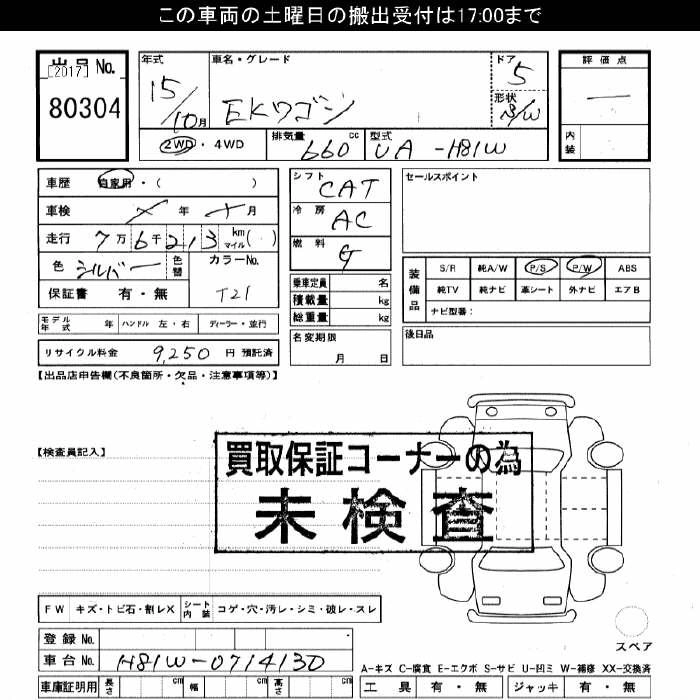 この車両の土曜日の搬出受付は17:00まで
出品No.
[2017]
80304
年式
15/10月
車名・グレード
EKワゴン
ドア
5
形状
評価点
―
内装
2WD・4WD
排気量
660 cc
型式
UA-H81W
車歴 自家用・( )
車検 年 月
走行 7万6千213 km マイル( )
色 シルバー 色替
カラーNo.
T21
保証書 有・無
シフト
CAT
冷房
AC
燃料
G
乗車定員 名
積載量 kg
総重量 kg
セールスポイント
装備品
S/R 純A/W P/S P/W ABS
純TV 純ナビ 革シート 外ナビ エアB
ナビ型番:
モデル年式 年 ハンドル 左・右 ディーラー・並行
リサイクル料金 9,250 円 預託済
名変期限
月 日
後日品
【出品店申告欄(不良箇所・欠品・注意事項等)】
【検査員記入】
買取保証コーナーの為
未検査
FW キズ・トビ石・割レX シート内装 コゲ・穴・汚レ・シミ・破レ・スレ
スペア
登録No.
車台No. H81W-0714130
車庫証明用 長さ cm 幅 cm 高さ cm
A-キズ C-腐食 E-エクボ S-サビ U-凹ミ W-補修 XX-交換済
工具 有・無 ジャッキ 有・無